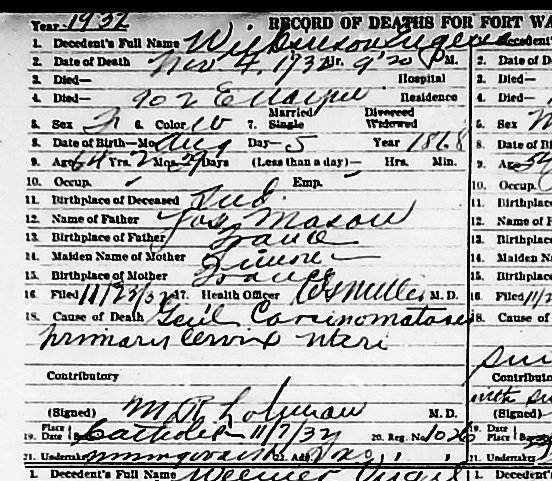 Year 1932 RECORD OF DEATHS FOR FORT WA
1. Decedent's Full Name Wilkinson Eugenia
2. Date of Death Nov 4, 1932 Hr. 9:20 P.M.
3. Died— Hospital
4. Died— 902 E Wayne Residence
5. Sex F 6. Color W 7. Married Single Divorced Widowed
8. Date of Birth—Mo. Aug Day— 5 Year 1868
9. Age 64 Yrs. 2 Mos. 29 Days (Less than a day)— Hrs. Min.
10. Occup. Emp.
11. Birthplace of Deceased Ind.
12. Name of Father Jos. Mason
13. Birthplace of Father France
14. Maiden Name of Mother
15. Birthplace of Mother France
16. Filed 11/23/32 17. Health Officer Miller M. D.
18. Cause of Death Genl Carcinomatosis
primary cervix uteri
Contributory
(Signed) M. R. Lohman M. D.
19. Place Date Catholic 11/7/32 20. Reg. No. 1026
21. Undertaker 22. Add.
1. Decedent's Full Name
2. Date of D
3. Died—
4. Died—
5. Sex
8. Date of Bi
9. Age
10. Occup.
11. Birthplace
12. Name of F
13. Birthplace
14. Maiden
15. Birthplace
16. Filed 11/2
18. Cause of
Contributo
(Signed)
19. Place Date
21. Undertake
1. Decedent's